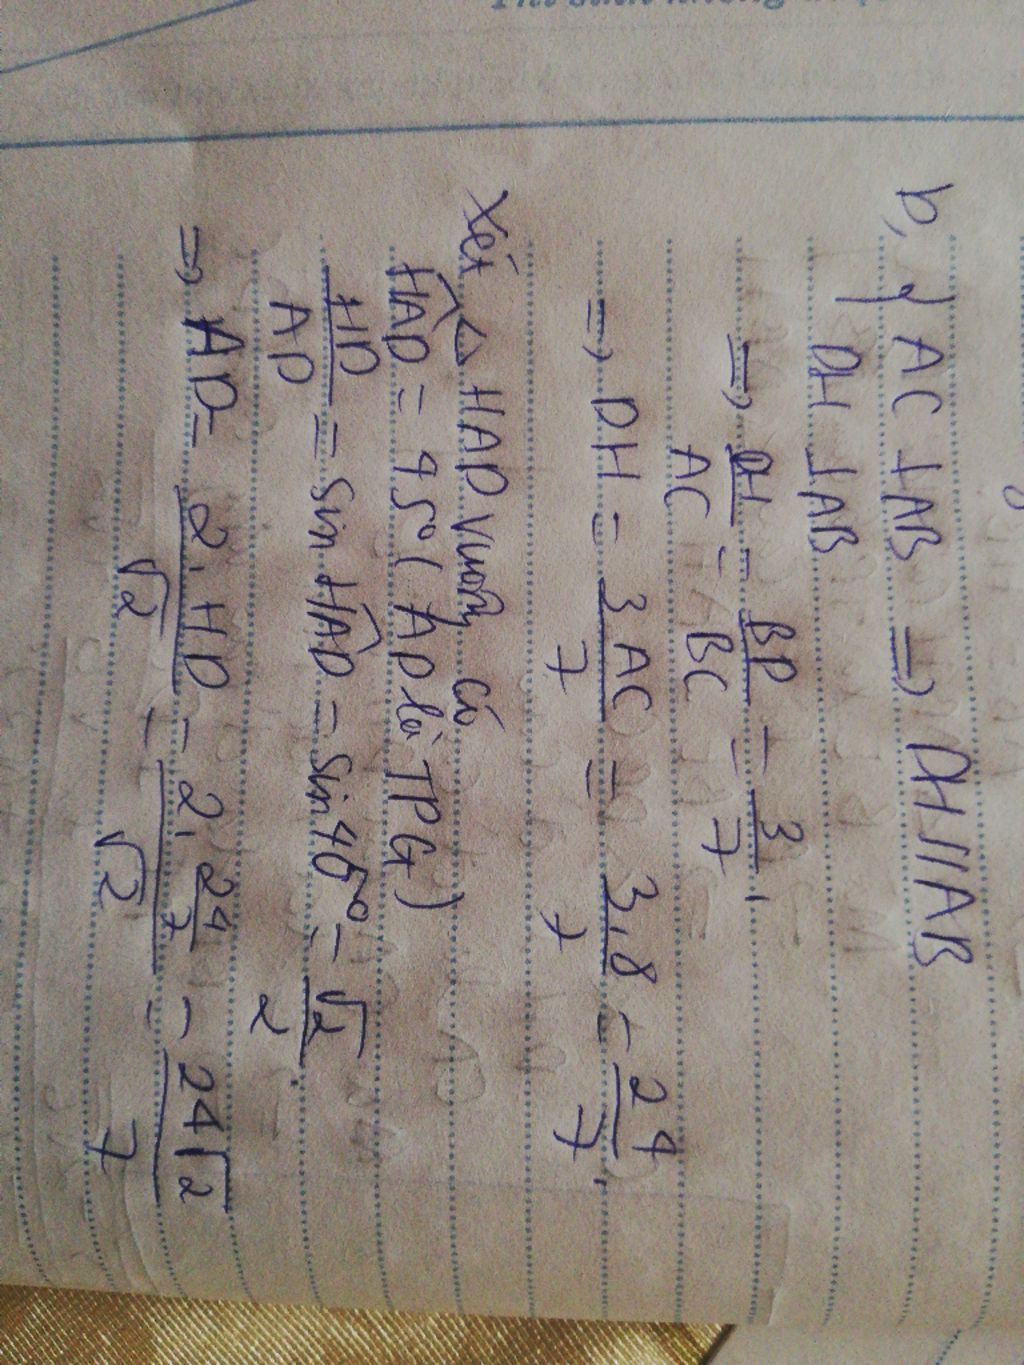 b, { AC ⊥ AB ⇒ DH // AB
DH ⊥ AB
⇒ DH/AC = BD/BC = 3/7,
⇒ DH = 3AC/7 = 3.8/7 = 24/7,
Xét △ HAD vuông có
HAD = 45° (AD là TPG)
HD/AD = Sin HAD = Sin 45° = √2/2.
⇒ AD = 2.HD/√2 = 2.24/7/√2 = 24√2/7